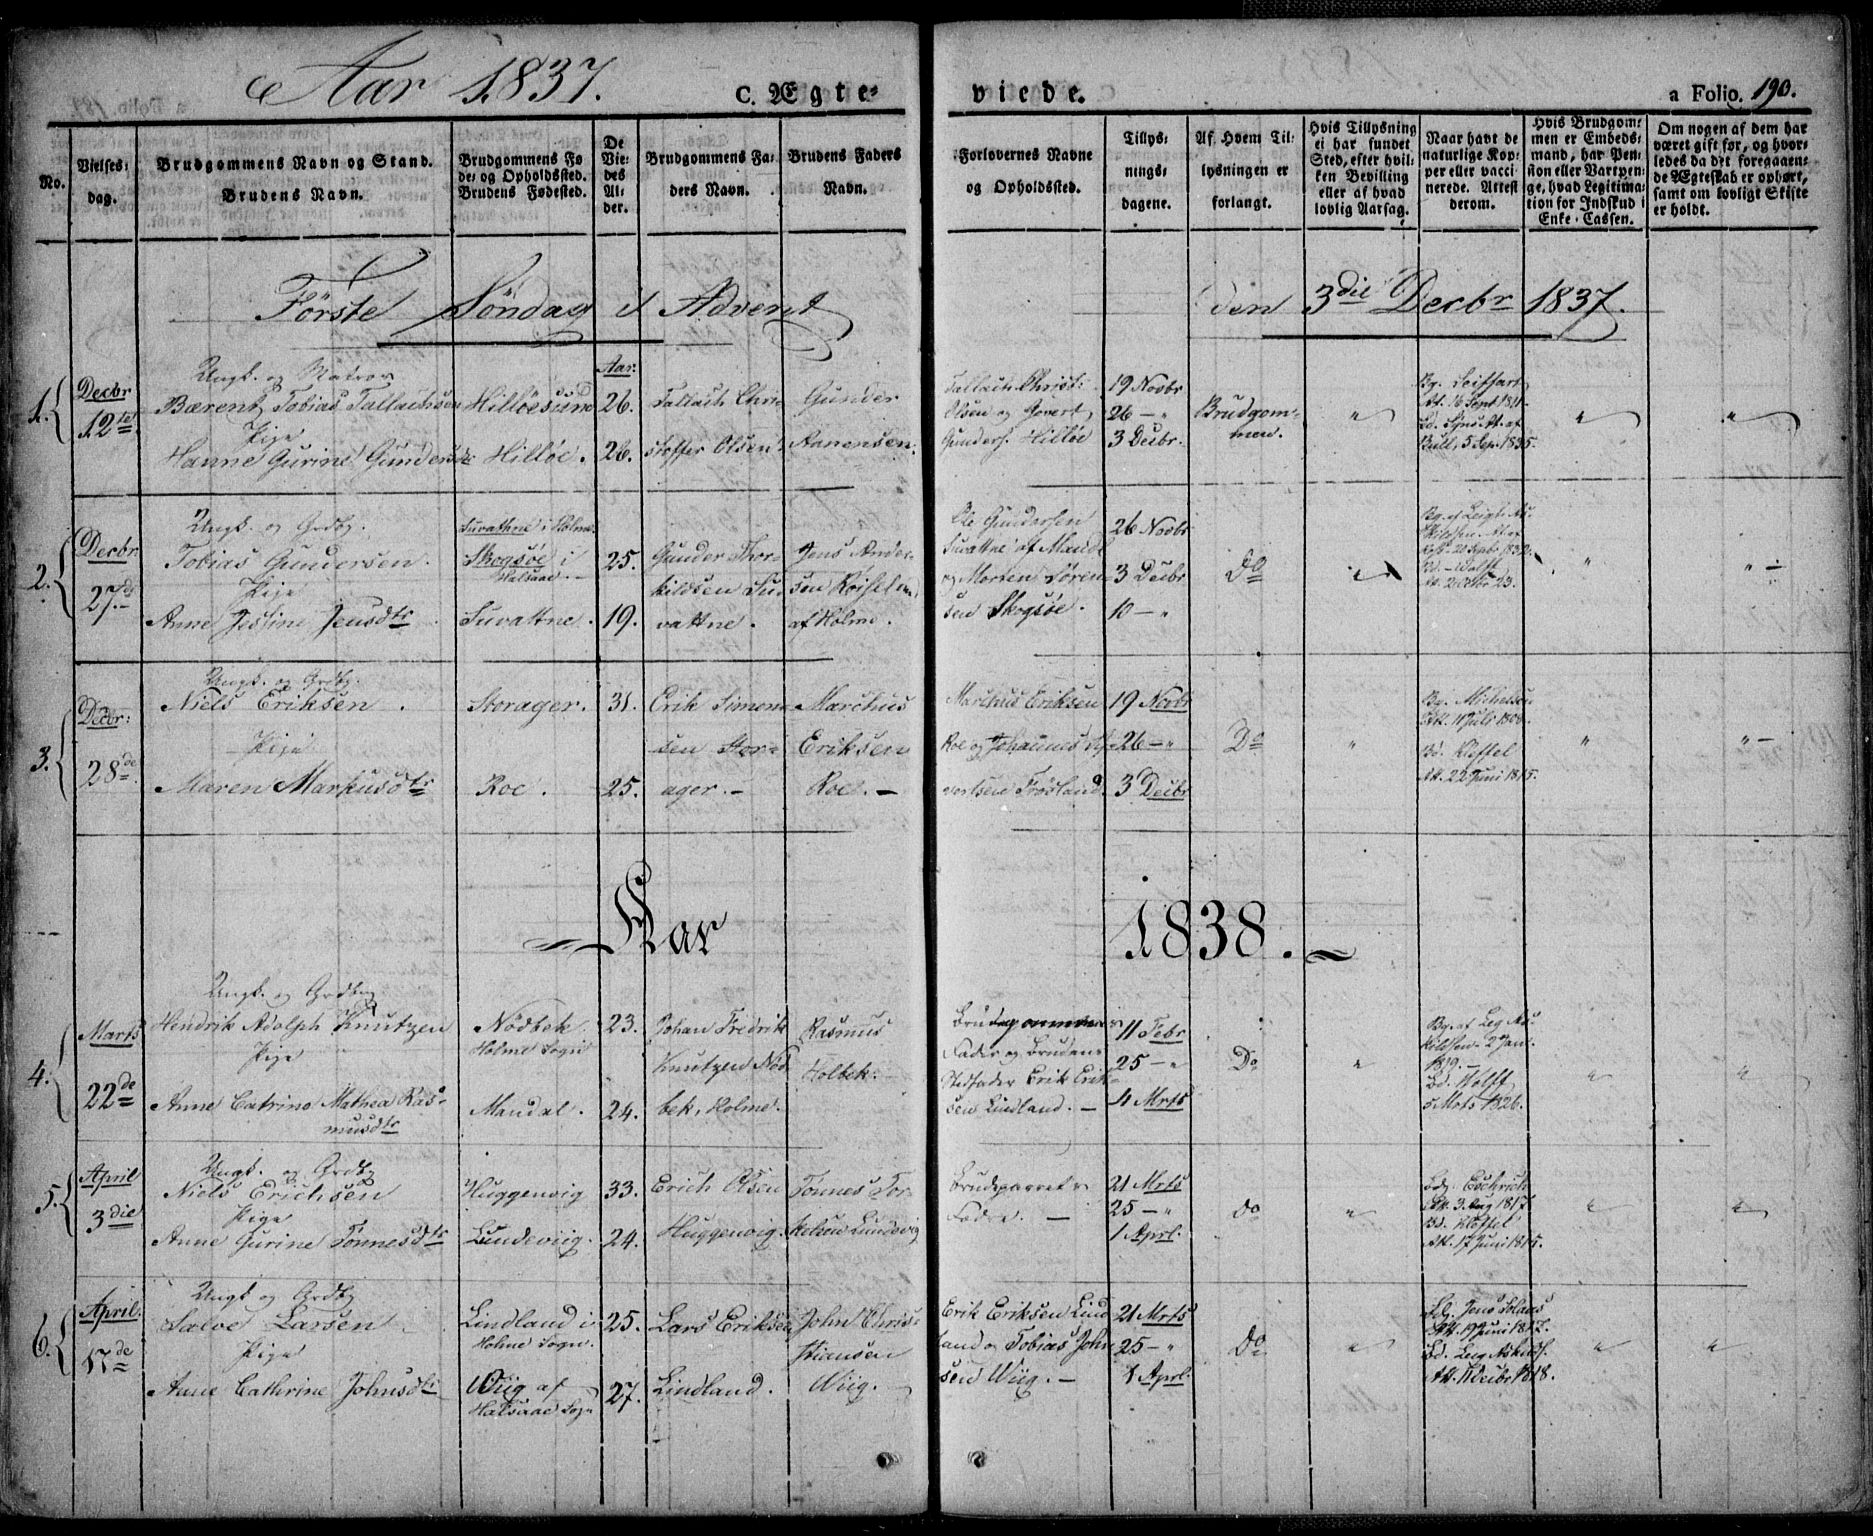 Aar 1837.
C. Ægte-
viede.
a Folio. 190.
No.
Vielses-
dag.
Brudgommens Navn og Stand.
Brudens Navn.
Brudgommens Fø
de- og Opholdssted.
Brudens Fødested.
De
Vie-
des
Al-
der.
Brudgommens Fa-
ders Navn.
Brudens Faders
Navn.
Forlovernes Navne
og Opholdssted.
Tillys-
nings-
dagene.
Af Hvem Til-
lysningen er
forlangt.
Hvis Tillysning
ei har fundet
Sted, efter hvil-
ken Bevilling
eller af hvad
lovlig Aarsag.
Naar havt de
naturlige Kop-
per eller vacci-
nerede. Attest
derom.
Hvis Brudgom-
men er Embeds-
mand, har Pen-
sion eller Vartpen-
ge, hvad Legitima-
tion for Indskud i
Enke-Cassen.
Om nogen af dem har
været gift før, og hvor-
ledes da det foregaaen-
de Ægteskab er ophørt,
samt om lovligt Skifte
er holdt.
Første Søndag i Advent
den 3die Decbr 1837.
1.
Decbr
12te
Ungk. og Matros
Bærent Tobias Tallachsen
Pige
Hanne Gurine Gundersdtr
Hilløesund
Hilløe.
Aar.
26.
26.
Tallach Chri-
stoffer Olsen
Gunder
Aanensen.
Tallach Christ:
Olsen og Govert
Gunders. Hilløe
19 Novbr
26 — "
3 Decbr.
Brudgom-
men.
"
Bg. Seithart
Att. 16 Sept 1811.
Bd. Att. af
Bull, 5 Sep. 1835.
"
"
2.
Decbr.
27de
Ungk. og Grdbr.
Tobias Gundersen.
Pige
Anne Jestine Jensdtr
Suvattne i Holme.
Skogsøe i
Halsaae.
Suvattne.
25.
19.
Gunder Thor-
kildsen Su-
vattne.
Jens Ander-
sen
af Holme.
Ole Gundersen
Suvattne af Mandl
og Morten Søren-
sen Skogsøe.
26 Novbr
3 Decbr
10 — "
Do
"
"
" —
3.
Decbr:
28de
Ungk. og Grdbr.
Niels Eriksen.
Pige
Maren Markusdtr
Storager.
Roe.
31.
25.
Erik Simon-
sen Stor-
ager. —
Marchus
Eriksen
Roe. —
Marchus Eriksen
Roe og Johannes
vertsen Frøsland.
19 Novbr
26 — "
3 Decbr
Do
"
Bg. Michelsen
Att. 11 Juli 1808.
Bd. Kleffel
Att. 22 Juni 1815.
"
" —
Aar
1838.
4.
Marts
22de
Ungk. og Grdbr
Hendrik Adolph Knutzen
Pige
Anne Catrine Mathea Ras-
musdtr
Nödbek.
Holme Sogn
Mandal.
23.
24.
Johan Fredrik
Knutzen Nöd
bek, Holme.
Rasmus
Holbek.
Brudgommens
Fader og Brudens
Stedfader Erik Erik-
sen Lindland. —
11 Febr
25 — "
4 Mrts
Do
"
Bg. af Leg As-
kildsen 2 Jan.
1819.
Bd. Wolff
5 Mrts 1826.
"
"
5.
April
3die
Ungk. og Grdbr
Niels Erichsen
Pige
Anne Gurine Tønnesdtr
Huggenvig
Lundeviig.
33.
24.
Erich Olsen
Huggenvig.
Tønnes Tor-
kelsen Lundevig
Brudeparrets
Fædre. —
21 Mrts
25 — "
1 Aprl.
do
"
Bdg. Eschrich
Att. 3 Aug 1817.
Bd. Kleffel
Att. 17 Juni 1815.
"
"
6.
April.
17de
Ungk og Grdbr
Salve Larsen
Pige
Anne Cathrine Johnsdtr
Lindland i
Holme Sogn.
Wiig af
Halsaae Sogn
25.
27.
Lars Eriksen
Lindland.
John Chris-
tiansen
Wiig.
Erik Eriksen Lind
land og Tobias John
sen Wiig. —
21 Mrts
25 — "
1 Aprl.
Do
"
Bdg. Jens Blaas
Att. 19 Juni 1817.
Bd. Leg Askilds.
Att. 11 Decbr 1818.
"
"